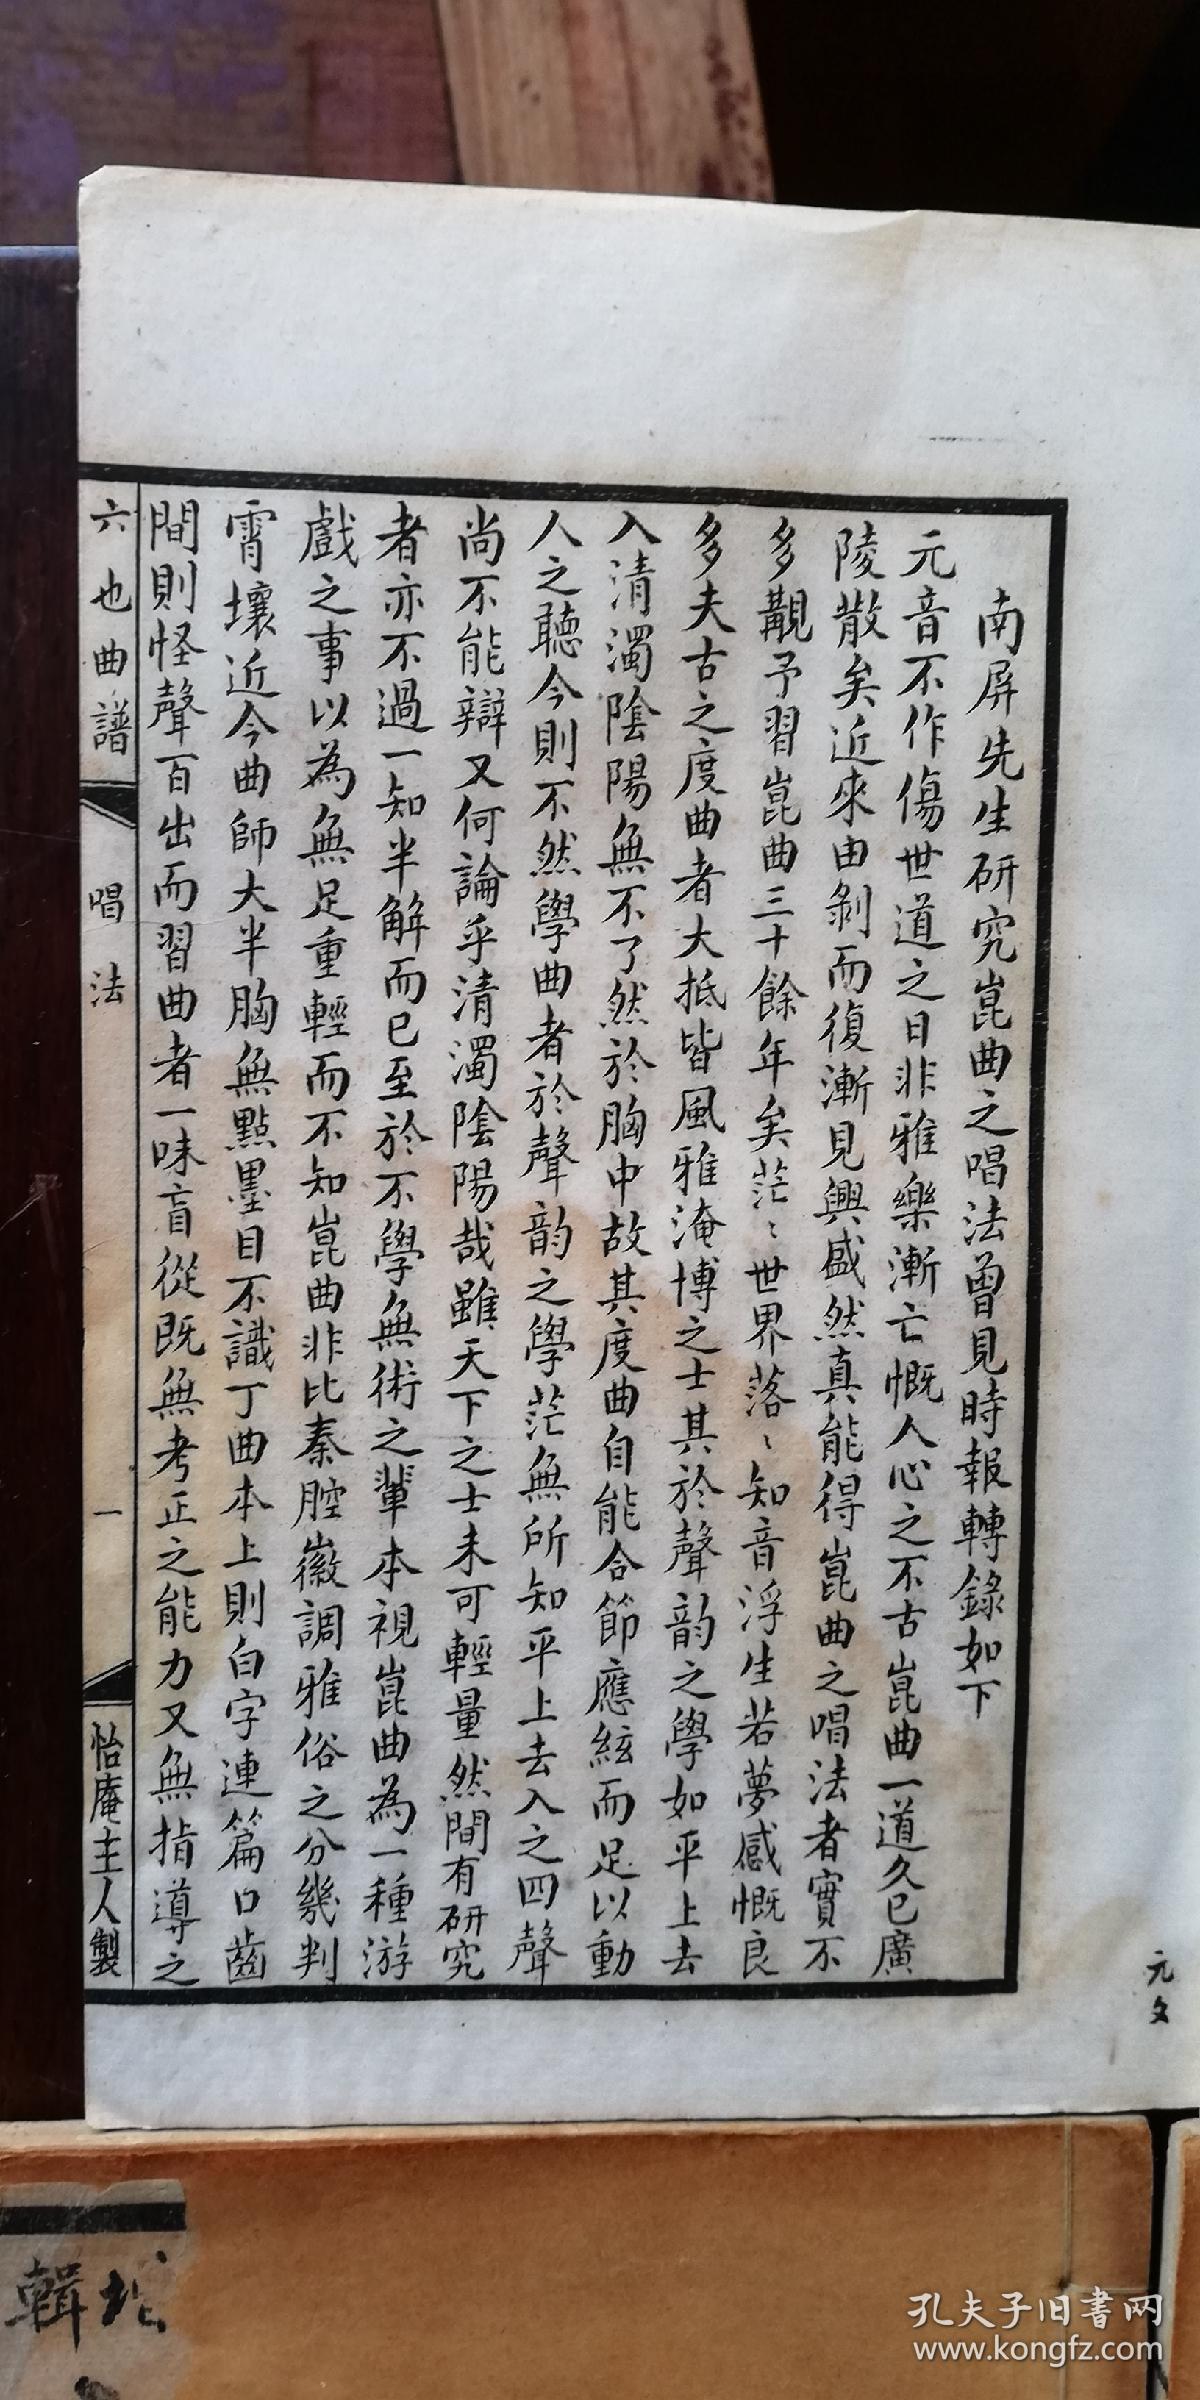 南屏先生研究崑曲之唱法曾見時報轉錄如下
元音不作傷世道之日非雅樂漸亡慨人心之不古崑曲一道久已廣
陵散矣近來由剝而復漸見興盛然真能得崑曲之唱法者實不
多覯予習崑曲三十餘年矣茫〻世界落〻知音浮生若夢感慨良
多夫古之度曲者大抵皆風雅淹博之士其於聲韵之學如平上去
入清濁陰陽無不了然於胸中故其度曲自能合節應絃而足以動
人之聽今則不然學曲者於聲韵之學茫無所知平上去入之四聲
尚不能辯又何論乎清濁陰陽哉雖天下之士未可輕量然間有研究
者亦不過一知半解而已至於不學無術之輩本視崑曲為一種游
戲之事以為無足重輕而不知崑曲非比秦腔徽調雅俗之分幾判
霄壤近今曲師大半胸無點墨目不識丁曲本上則白字連篇口齒
間則怪聲百出而習曲者一味盲從既無考正之能力又無指導之
六也曲譜
唱法
一
怡庵主人製
元文
輯
孔夫子旧书网
www.kongfz.com